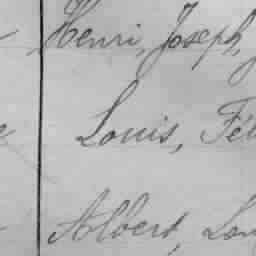 Henri, Joseph,
Louis, Fé
Albert, Lou